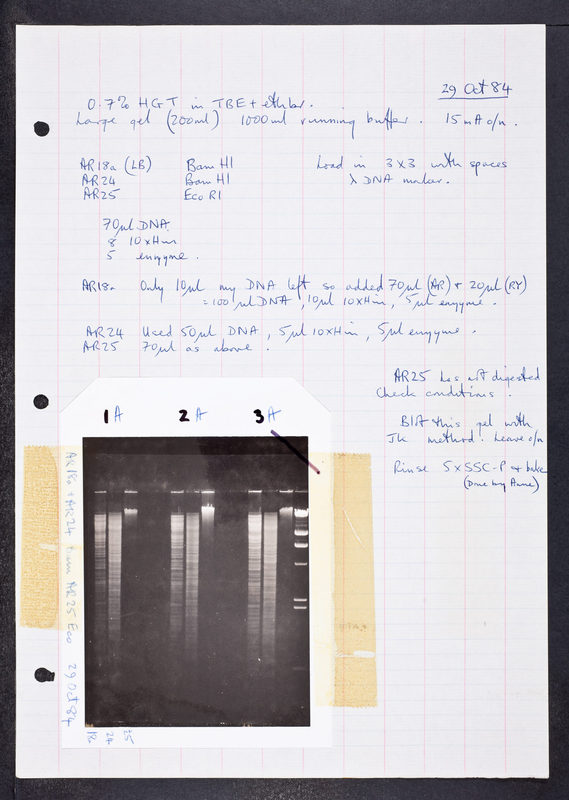 29 Oct 84
0.7% HGT in TBE + ethbr.
Large gel (200ml) 1000ml running buffer. 15mA o/n.
AR18a (LB) Bam HI
AR24 Bam HI
AR25 Eco RI
Load in 3 x 3 with spaces
λ DNA marker.
70µl DNA
8 10xHin
5 enzyme.
AR18a Only 10µl my DNA left so added 70µl (AR) + 20µl (RY)
= 100µl DNA, 10µl 10xHin, 5µl enzyme.
AR24 Used 50µl DNA, 5µl 10xHin, 5µl enzyme.
AR25 70µl as above.
AR25 has not digested
Check conditions.
Blot this gel with
method. Leave o/n
Rinse 5xSSC-P & bake
(Done by Anne)
1A 2A 3A
AR18a + AR24 Bam AR25 Eco 29 Oct 84
18a 24 25